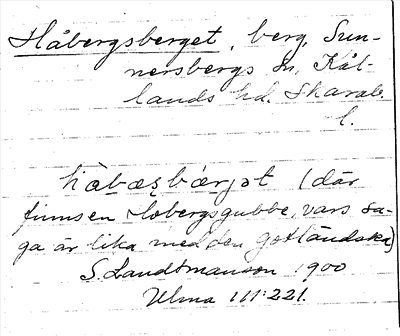 Håbergsberget, berg, Sun-
nersbergs sn, Kål-
lands hd. Skarab.
l.
hàbæʂbær̡ət (där
finns en Hobergsgubbe, vars sa-
ga är lika med den gotländska)
S. Landtmanson 1900
Ulma 111:221.